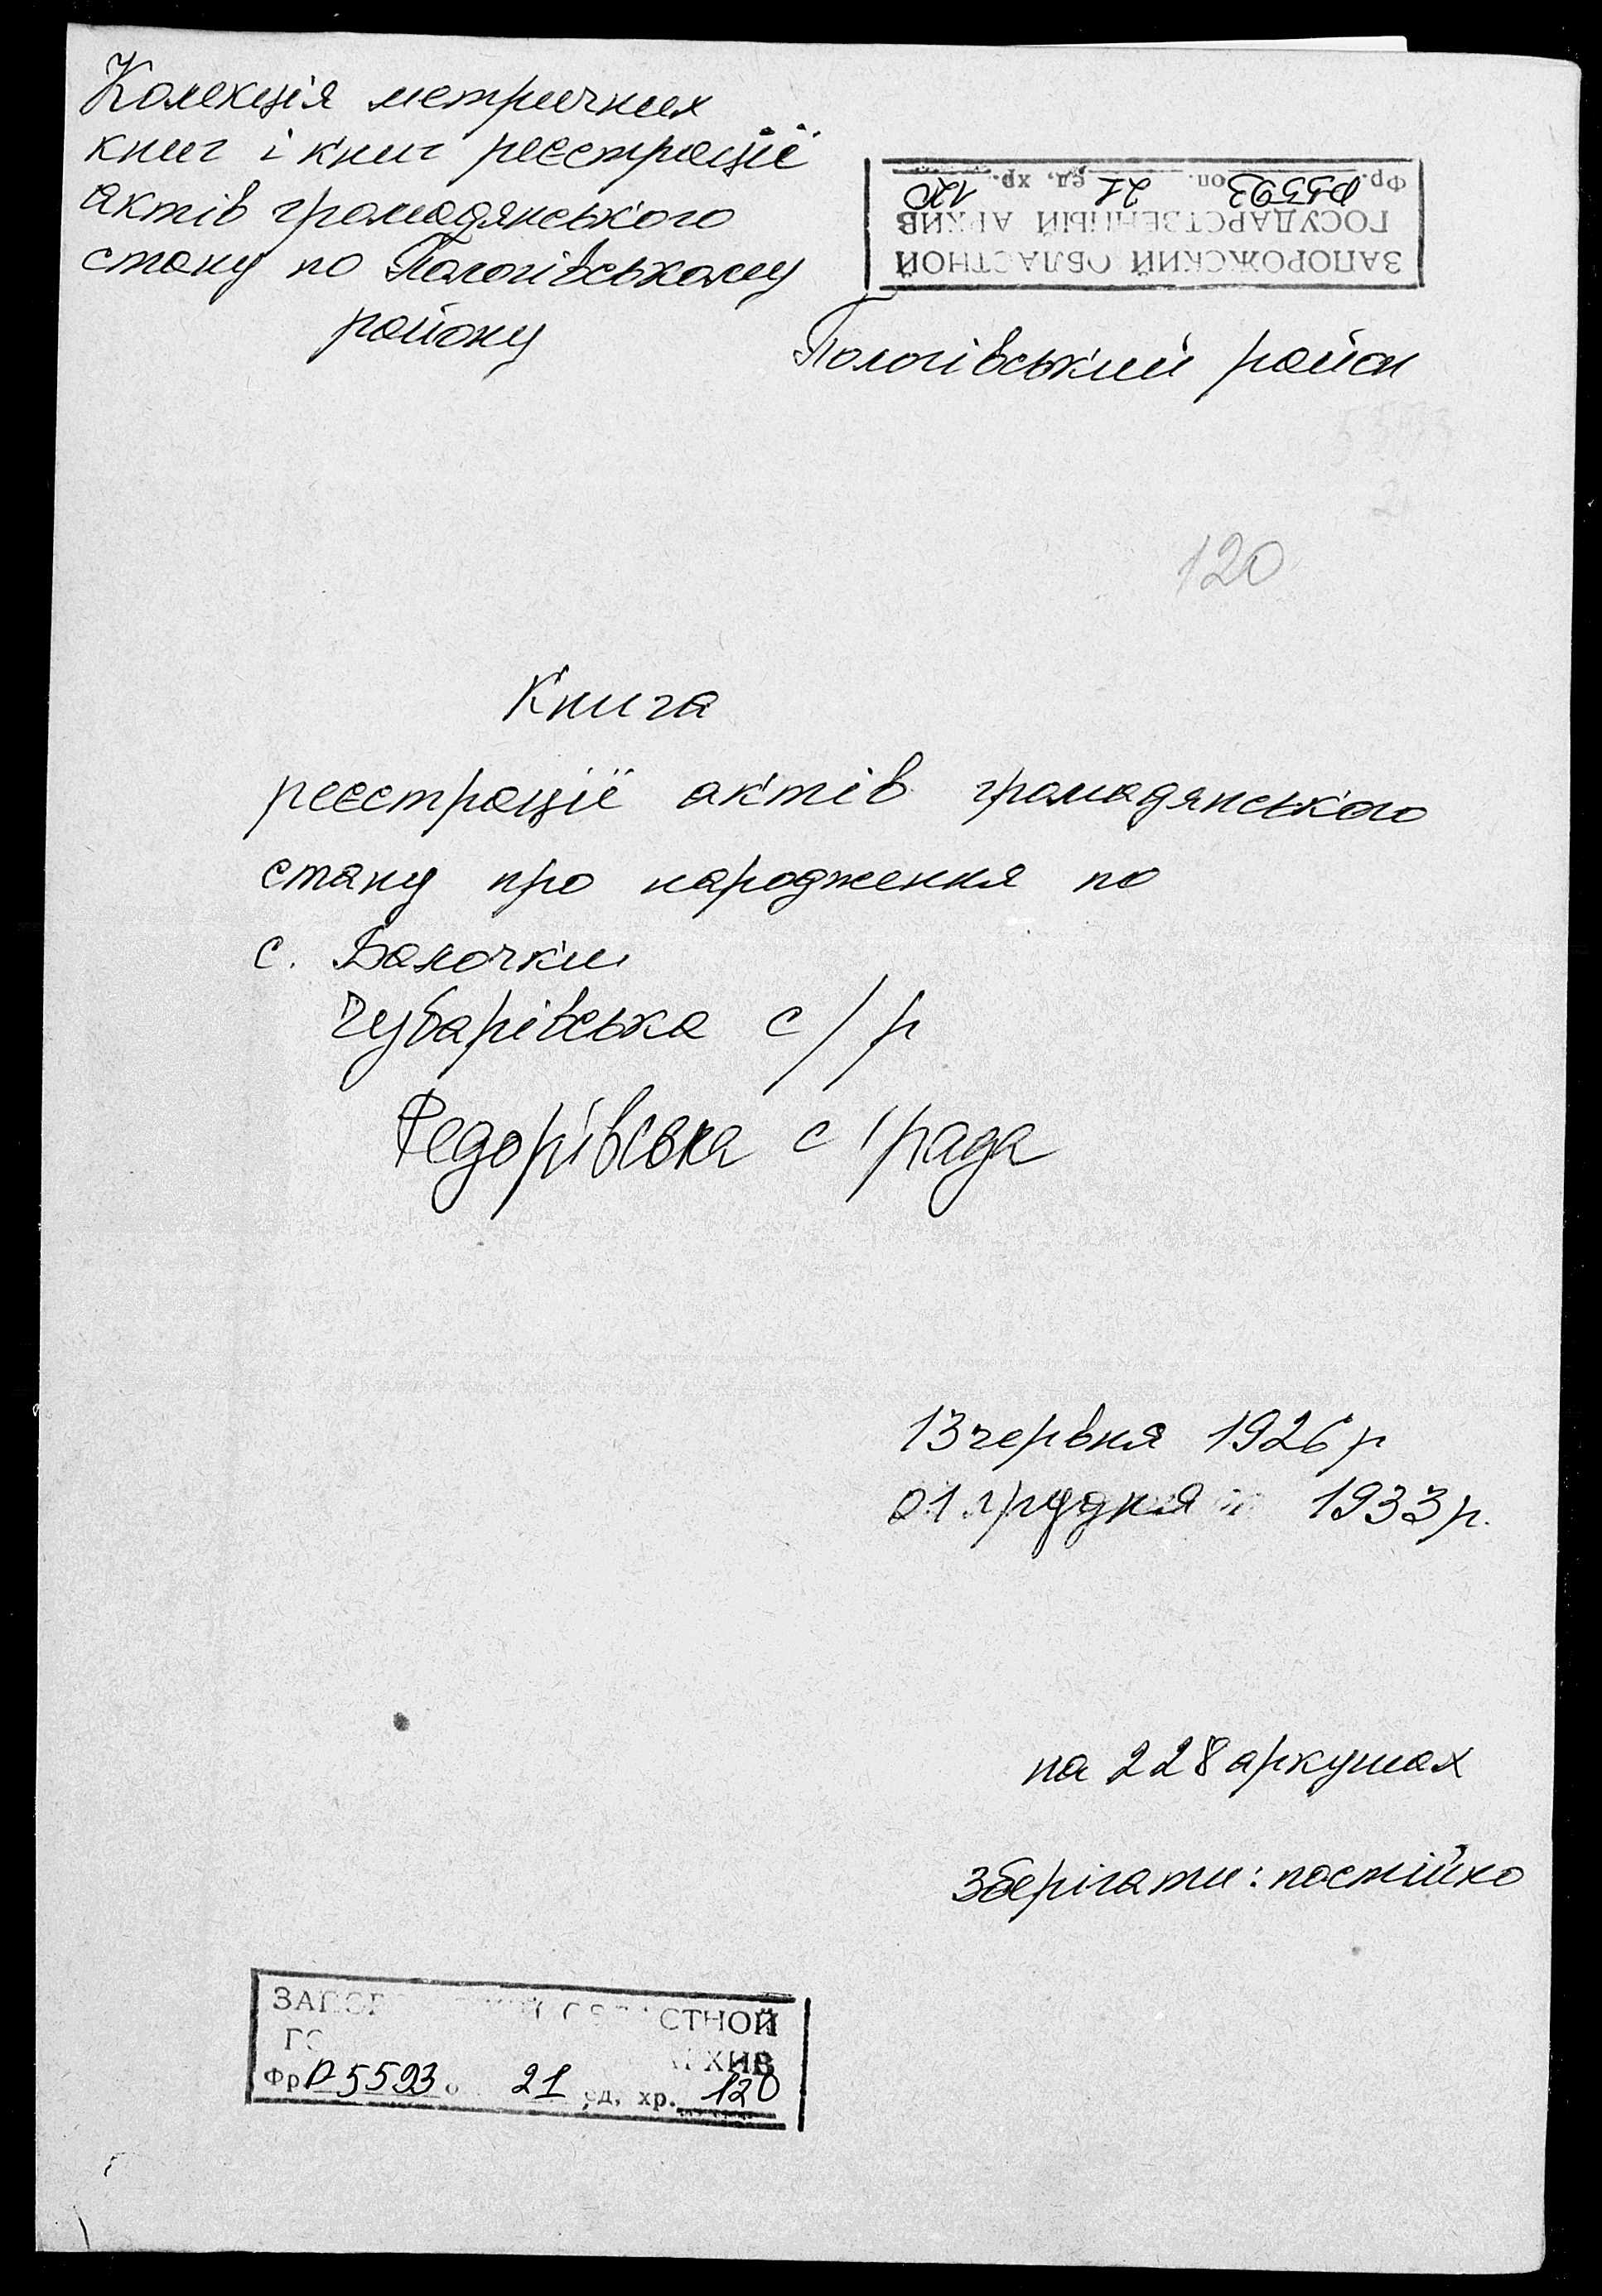 Колекція метричних
книг і книг реєстрації
актів громадянського
стану по Пологівському
району
ЗАПОРОЖСКИЙ ОБЛАСТНОЙ
ГОСУДАРСТВЕННЫЙ АРХИВ
Фр. Р5593 оп. 21 ед. хр. 120
Пологівський район
5593
2
120
Книга
реєстрації актів громадянського
стану про народження по
с. Балочки
Чубарівська с/р
Федорівська с/рада
13 червня 1926 р
01 грудня 1933 р.
на 228 аркушах
Зберігати: постійно
СТНОЙ
ХИВ
Фр Р-5593 о 21 ед. хр. 120